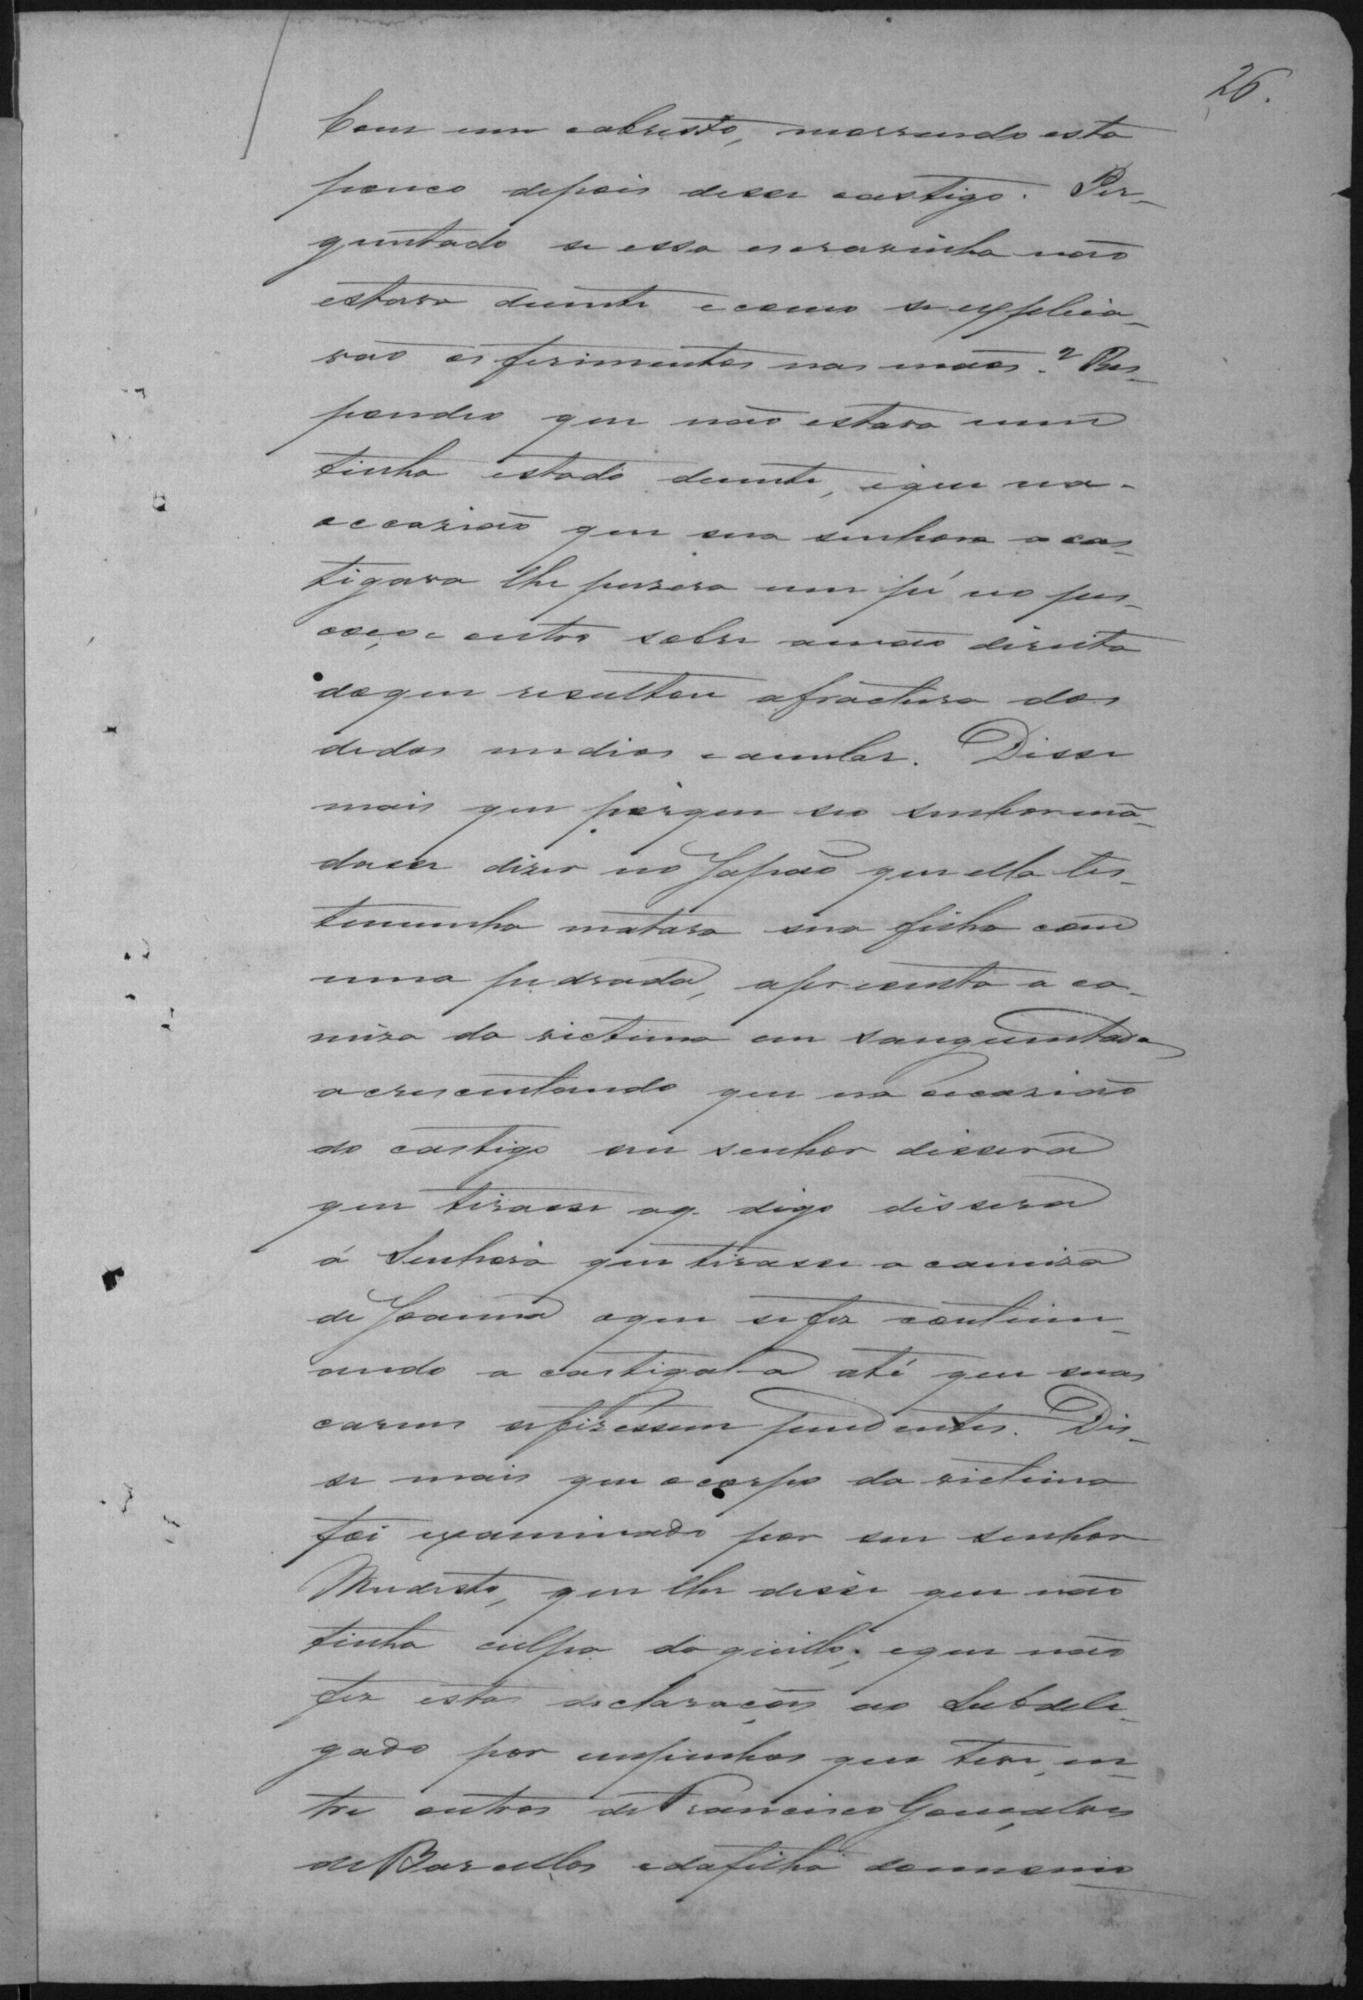 26.
Com um cabresto, morrendo esta
pouco depois desse castigo. Per-
guntado se essa escravinha não
estava duente e como se explica-
vão os ferimentos nas mãos? Res-
pondeo que não estava nem
tinha estado duente, e que na
occazião que sua senhora a cas-
tigava lhe puzera um pé no pes-
coço e outro sobre a mão direita
do que resultou a fractura dos
dedos medios e anular. Disse
mais que porque seo senhor mã-
dasse dizer no Japão que ella tes-
temunha matara sua filha com
uma pedrada, apresenta a ca-
miza da victima en sanguentada
acrescentando que na occazião
do castigo seu senhor dissera
que tirasse aq. digo dissera
á Senhora que tirasse a camiza
de Joanna o que se fez continu-
ando a castigal-a até que suas
carnes se fizessem pendentes. Dis-
se mais que o corpo da victima
foi examinado por seu senhor
Modesto, que lhe disse que não
tinha culpa daquillo; e que não
fez estas declarações ao Subdele-
gado por empenhos que teve, en-
tre outros de Francisco Gonçalves
de Barcellos e da filha do mesmo